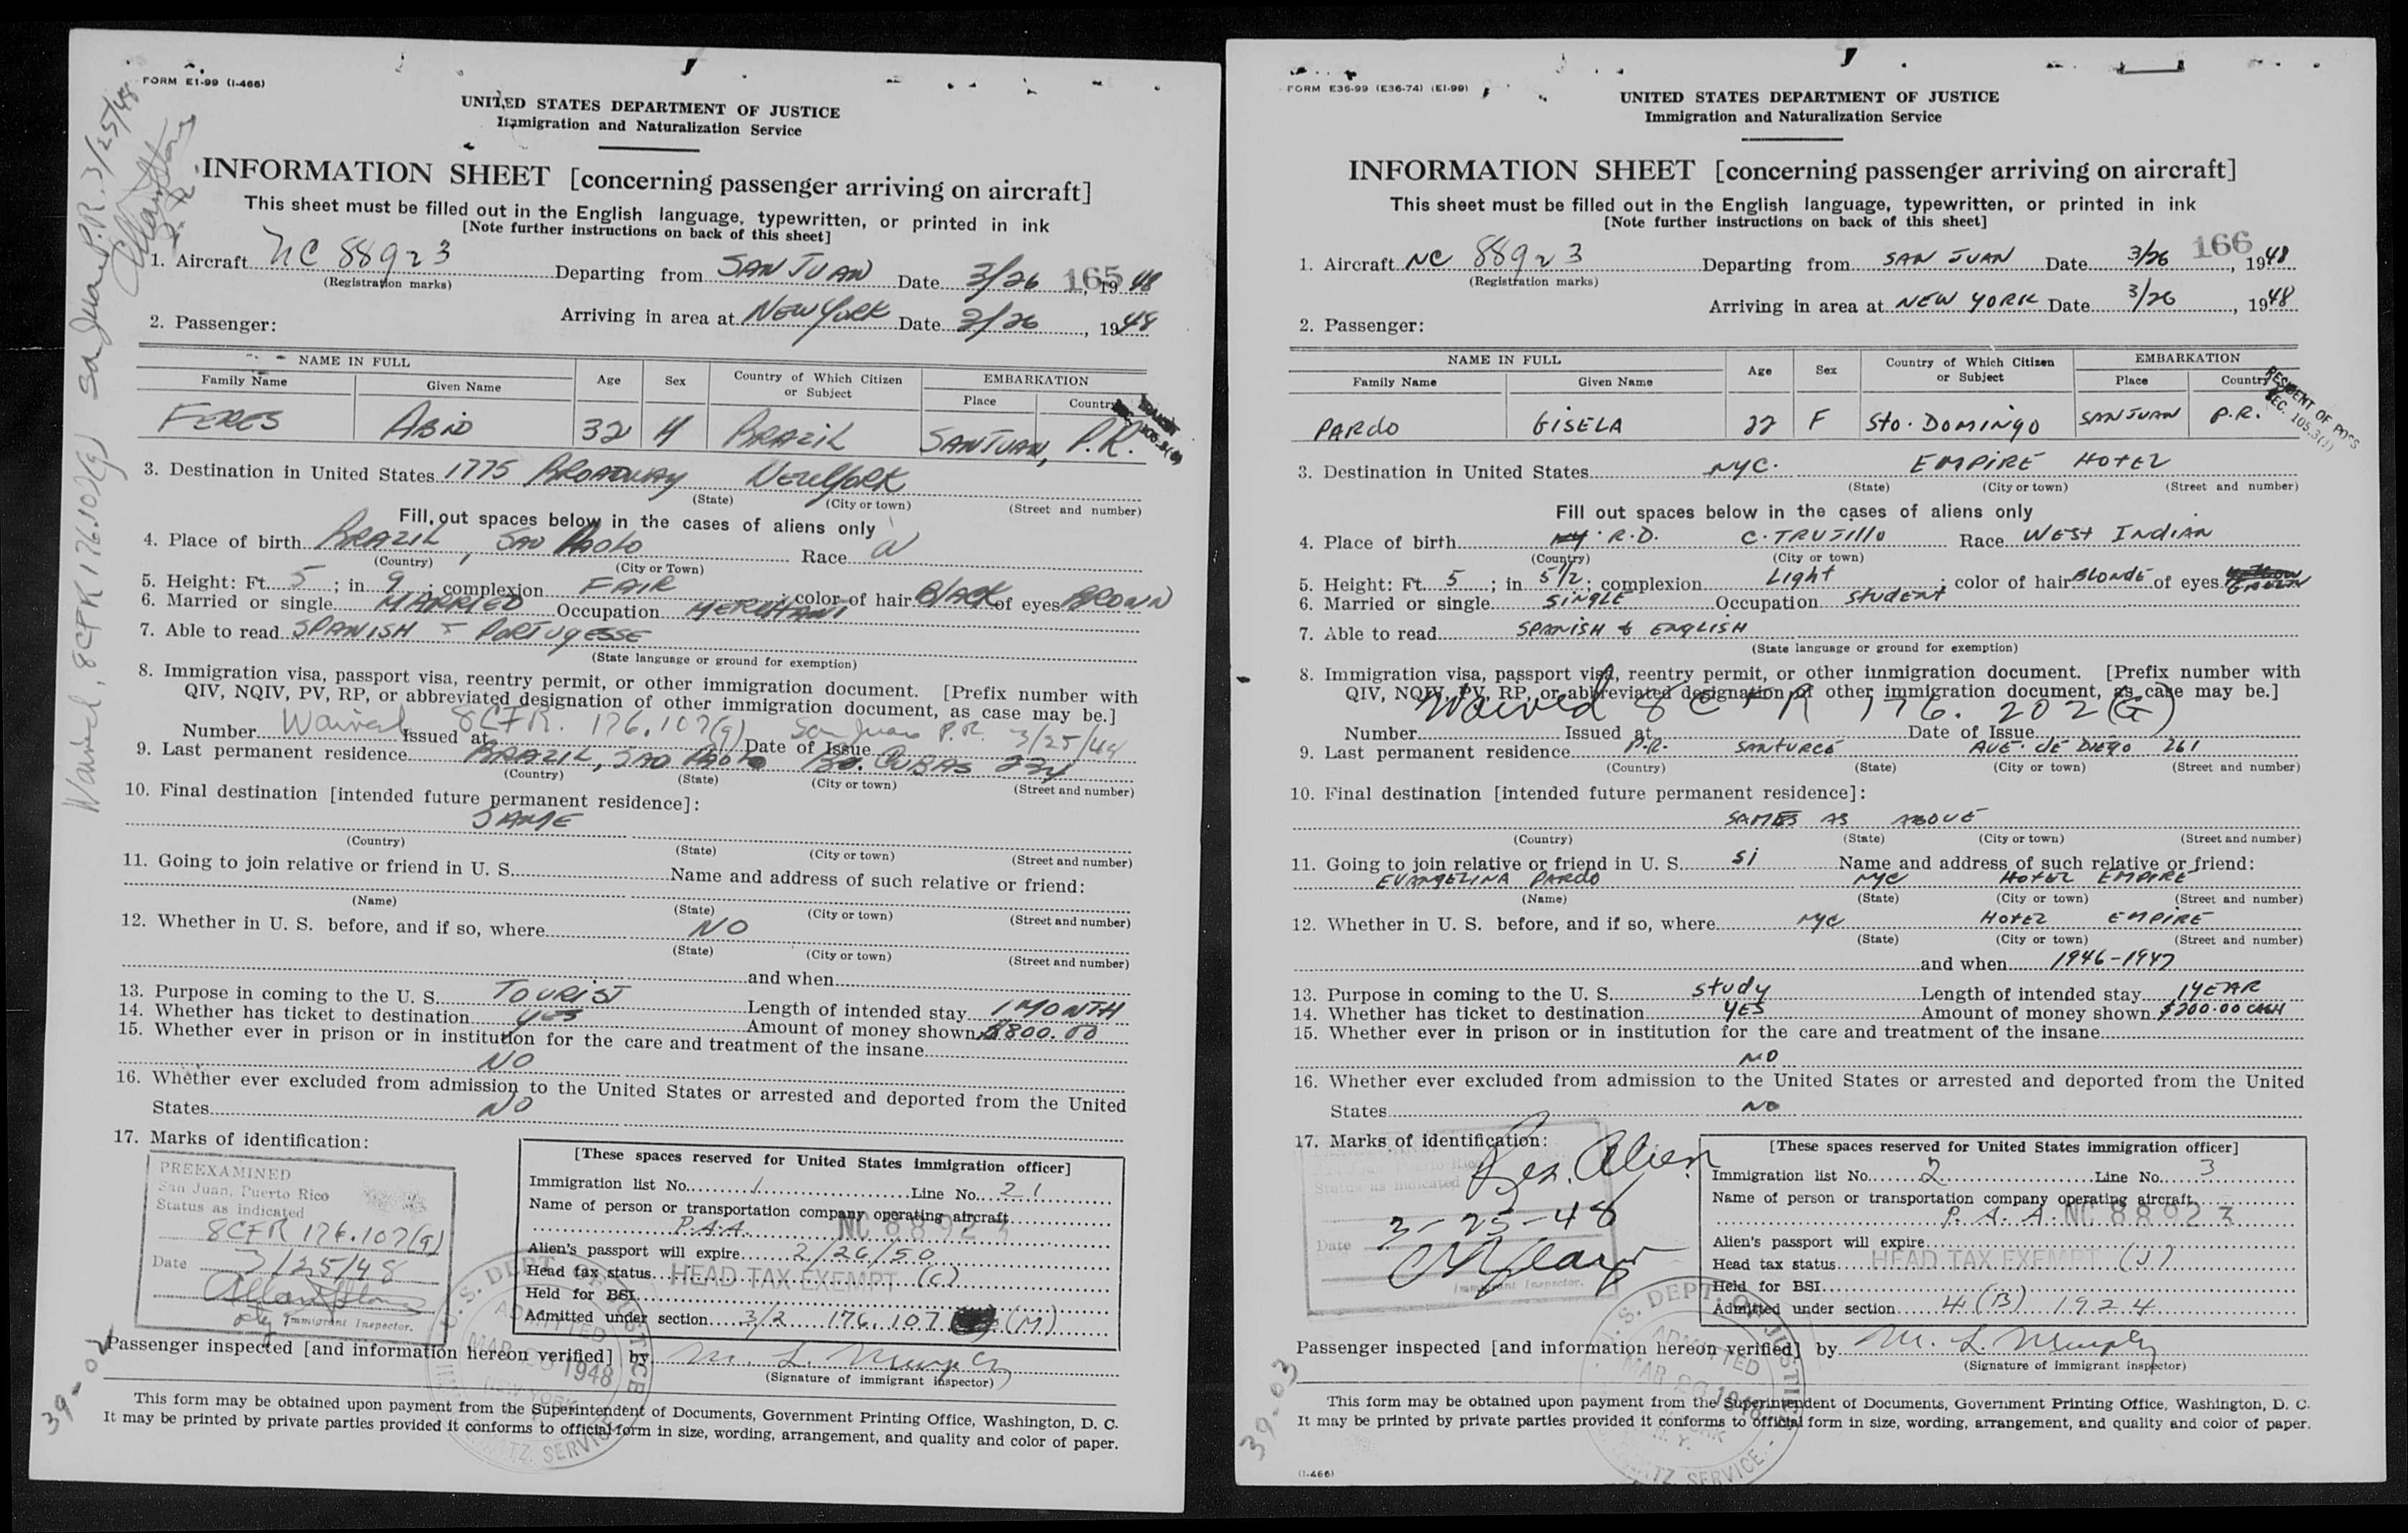 FORM E1-99 (I-466)
UNITED STATES DEPARTMENT OF JUSTICE
Immigration and Naturalization Service
INFORMATION SHEET [concerning passenger arriving on aircraft]
This sheet must be filled out in the English language, typewritten, or printed in ink
[Note further instructions on back of this sheet]
1. Aircraft NC 88923 Departing from SAN JUAN Date 3/26 165, 1948
(Registration marks)
Arriving in area at NEW YORK Date 3/26, 1948
2. Passenger:
NAME IN FULL Age Sex Country of Which Citizen or Subject EMBARKATION
Family Name Given Name Place Country
FERES ABID 32 M BRAZIL SAN JUAN, P.R.
3. Destination in United States 1775 BROADWAY NEW YORK
(State) (City or town) (Street and number)
Fill out spaces below in the cases of aliens only
4. Place of birth BRAZIL, SAO PAOLO Race W
(Country) (City or Town)
5. Height: Ft. 5; in 9; complexion FAIR; color of hair BLACK of eyes BROWN
6. Married or single MARRIED Occupation MERCHANT
7. Able to read SPANISH & PORTUGESSE
(State language or ground for exemption)
8. Immigration visa, passport visa, reentry permit, or other immigration document. [Prefix number with
QIV, NQIV, PV, RP, or abbreviated designation of other immigration document, as case may be.]
Number Waived 8CFR. 176.107(g) Issued at San Juan P.R. Date of Issue 3/25/48
9. Last permanent residence BRAZIL, SAO PAOLO CUBAS 224
(Country) (State) (City or town) (Street and number)
10. Final destination [intended future permanent residence]:
SAME
(Country) (State) (City or town) (Street and number)
11. Going to join relative or friend in U. S. Name and address of such relative or friend:
(Name) (State) (City or town) (Street and number)
12. Whether in U. S. before, and if so, where NO
(State) (City or town) (Street and number)
and when
13. Purpose in coming to the U. S. TOURIST Length of intended stay 1 MONTH
14. Whether has ticket to destination YES Amount of money shown $800.00
15. Whether ever in prison or in institution for the care and treatment of the insane
NO
16. Whether ever excluded from admission to the United States or arrested and deported from the United
States NO
17. Marks of identification:
PREEXAMINED
San Juan, Puerto Rico
Status as indicated
8CFR 176.107(g)
Date 3/25/48
Immigrant Inspector.
[These spaces reserved for United States immigration officer]
Immigration list No. 1 Line No. 21
Name of person or transportation company operating aircraft
P.A.A. NC 88923
Alien's passport will expire 2/26/50
Head tax status HEAD TAX EXEMPT (C)
Held for BSI
Admitted under section 3/2 176.107 (M)
Passenger inspected [and information hereon verified] by M. L. Murphy
(Signature of immigrant inspector)
This form may be obtained upon payment from the Superintendent of Documents, Government Printing Office, Washington, D. C.
It may be printed by private parties provided it conforms to official form in size, wording, arrangement, and quality and color of paper.
Waived, 8CFR 176.107(g) San Juan P.R. 3/25/48
39-02
FORM E36-99 (E36-74) (E1-99)
UNITED STATES DEPARTMENT OF JUSTICE
Immigration and Naturalization Service
INFORMATION SHEET [concerning passenger arriving on aircraft]
This sheet must be filled out in the English language, typewritten, or printed in ink
[Note further instructions on back of this sheet]
1. Aircraft NC 88923 Departing from SAN JUAN Date 3/26 166, 1948
(Registration marks)
Arriving in area at NEW YORK Date 3/26, 1948
2. Passenger:
NAME IN FULL Age Sex Country of Which Citizen or Subject EMBARKATION
Family Name Given Name Place Country
PARDO GISELA 22 F Sto. DOMINGO SAN JUAN P.R.
RESIDENT OF POSS
SEC. 105.3(1)
3. Destination in United States NYC. EMPIRE HOTEL
(State) (City or town) (Street and number)
Fill out spaces below in the cases of aliens only
4. Place of birth R.D. C. TRUJILLO Race WEST INDIAN
(Country) (City or town)
5. Height: Ft. 5; in 5 1/2; complexion Light; color of hair BLONDE of eyes
6. Married or single SINGLE Occupation STUDENT
7. Able to read SPANISH & ENGLISH
(State language or ground for exemption)
8. Immigration visa, passport visa, reentry permit, or other immigration document. [Prefix number with
QIV, NQIV, PV, RP, or abbreviated designation of other immigration document, as case may be.]
Waived 8 CFR 176.202(G)
Number Issued at Date of Issue
9. Last permanent residence P.R. SANTURCE AVE. DE DIEGO 261
(Country) (State) (City or town) (Street and number)
10. Final destination [intended future permanent residence]:
SAMES AS ABOVE
(Country) (State) (City or town) (Street and number)
11. Going to join relative or friend in U. S. Si Name and address of such relative or friend:
EVANGELINA PARDO NYC HOTEL EMPIRE
(Name) (State) (City or town) (Street and number)
12. Whether in U. S. before, and if so, where NYC HOTEL EMPIRE
(State) (City or town) (Street and number)
and when 1946-1947
13. Purpose in coming to the U. S. Study Length of intended stay 1 YEAR
14. Whether has ticket to destination YES Amount of money shown $200.00 CASH
15. Whether ever in prison or in institution for the care and treatment of the insane
NO
16. Whether ever excluded from admission to the United States or arrested and deported from the United
States NO
17. Marks of identification:
Res. Alien
3-25-48
Date
Immigrant Inspector.
[These spaces reserved for United States immigration officer]
Immigration list No. 2 Line No. 3
Name of person or transportation company operating aircraft
P. A. A. NC 88923
Alien's passport will expire
Head tax status HEAD TAX EXEMPT (J)
Held for BSI
Admitted under section 4(B) 1924
Passenger inspected [and information hereon verified] by M. L. Murphy
(Signature of immigrant inspector)
This form may be obtained upon payment from the Superintendent of Documents, Government Printing Office, Washington, D. C.
It may be printed by private parties provided it conforms to official form in size, wording, arrangement, and quality and color of paper.
(I-466)
39-03